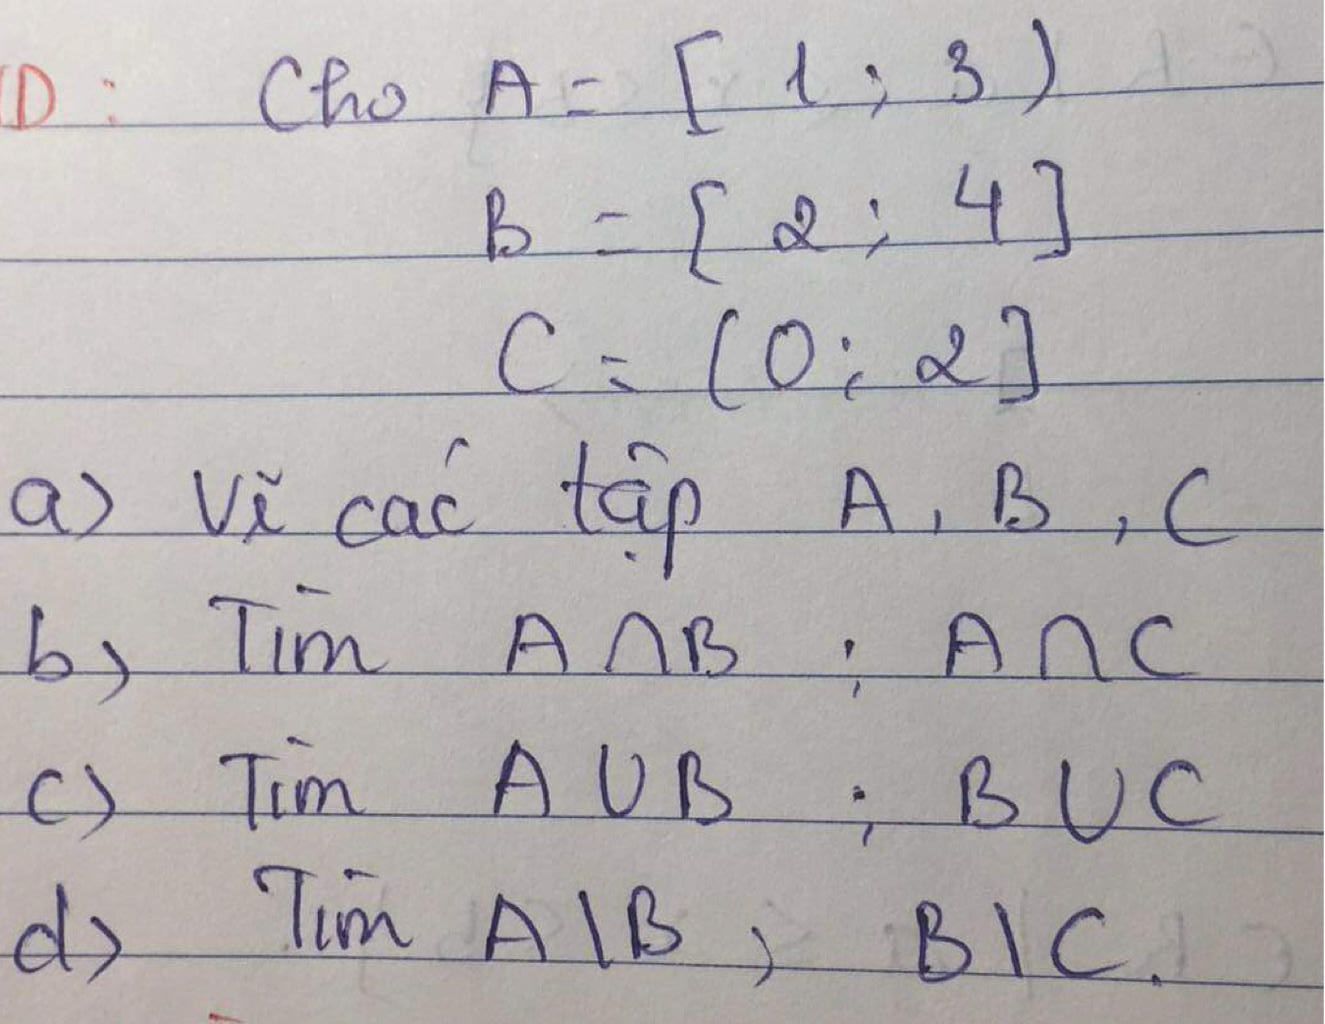 D: Cho A = [1; 3)
B = [2; 4]
C = (0; 2]
a) Vẽ các tập A, B, C
b) Tìm A ∩ B ; A ∩ C
c) Tìm A ∪ B ; B ∪ C
d) Tìm A \ B ; B \ C.